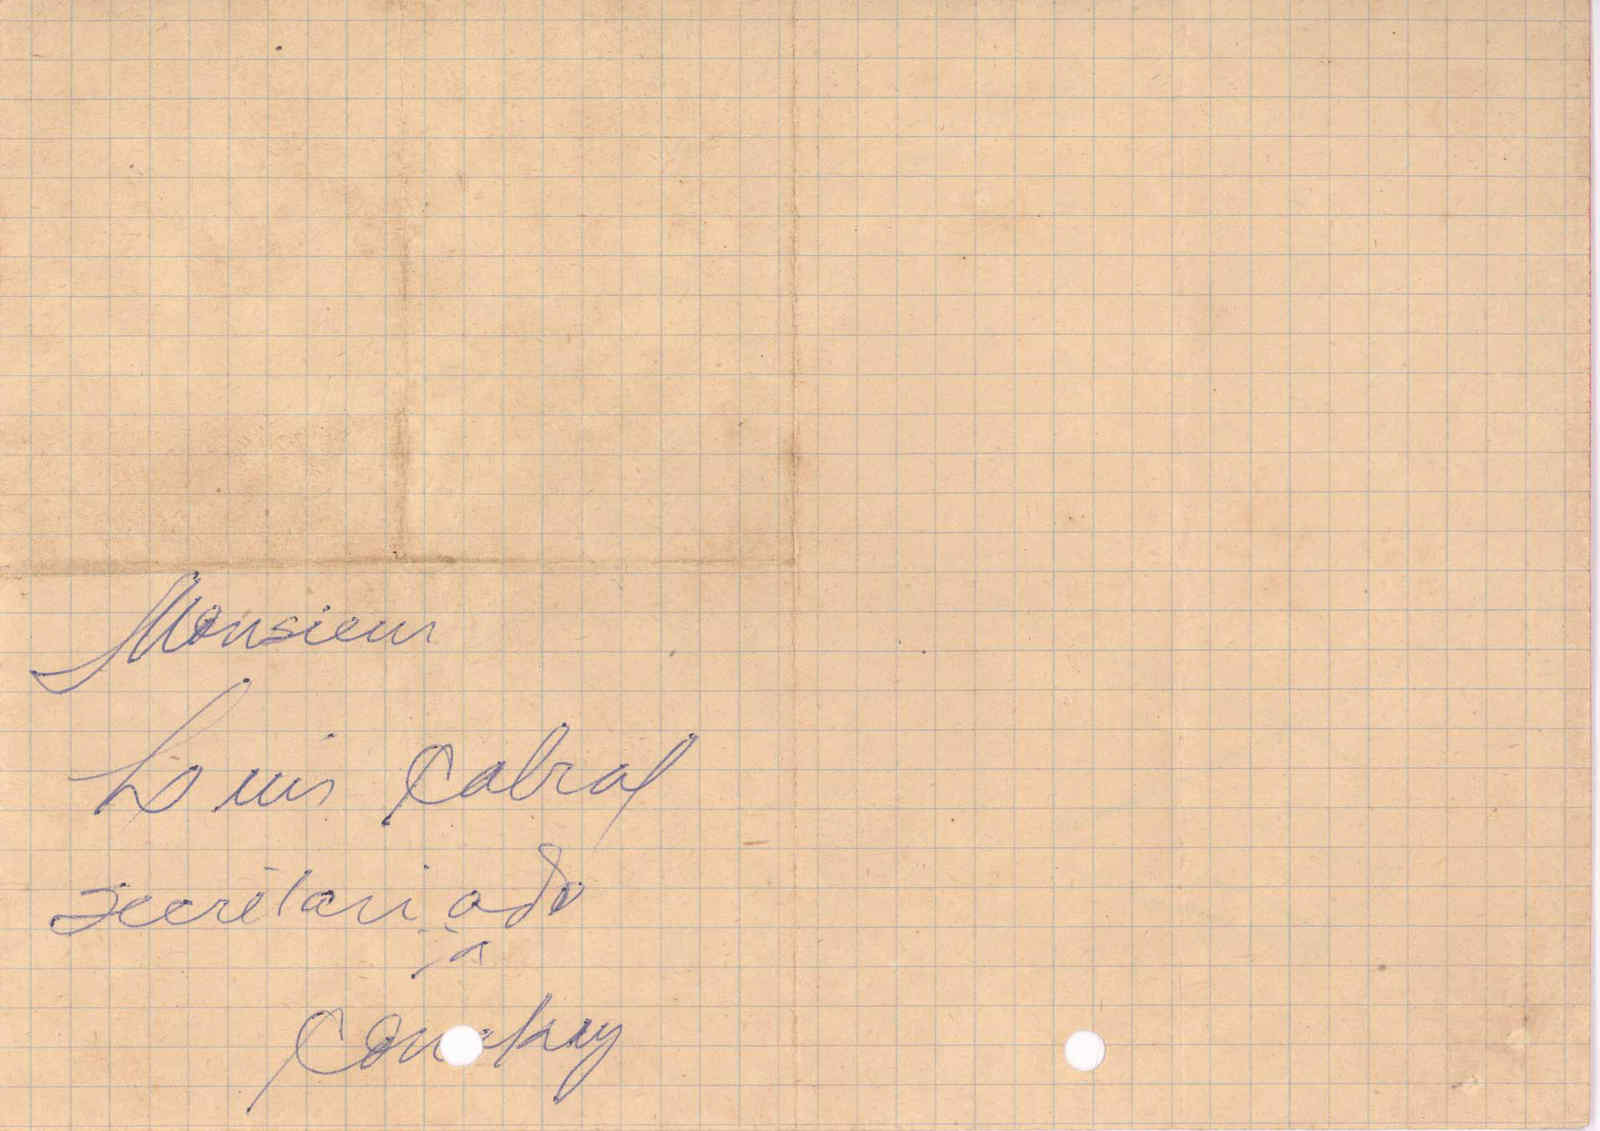 Monsieur
Louis Cabral
Secrétariado
à
Conakry